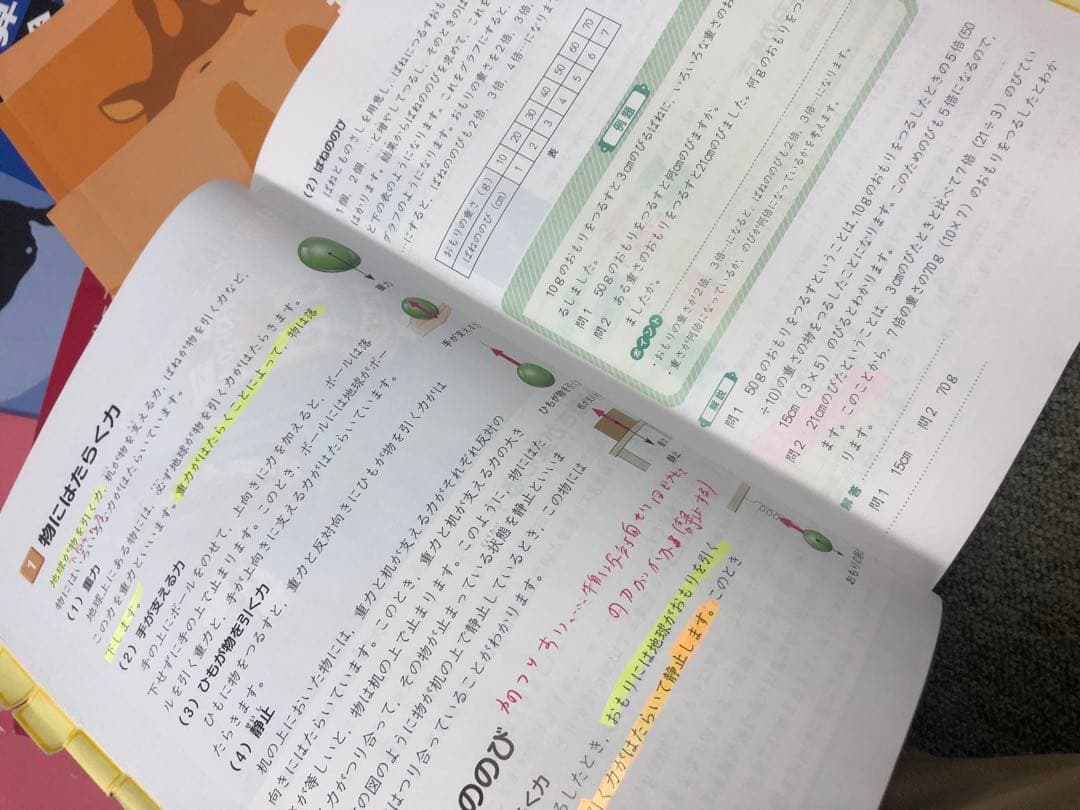 1 物にはたらく力
地球が物を引く力、机が物を支える力、ばねが物を引く力など、
物にはいろいろな力がはたらいています。
(1) 重力
地球上にある物には、必ず地球が物を引く力がはたらきます。
この力を重力といいます。重力がはたらくことによって、物は落
下します。
(2) 手が支える力
手の上にボールをのせて、上向きに力を加えると、ボールは落
下せずに手の上で止まります。このとき、ボールには地球がボー
ルを引く重力と、手が上向きに支える力がはたらいています。
(3) ひもが物を引く力
ひもに物をつるすと、重力と反対向きにひもが物を引く力がは
たらきます。
(4) 静止
机の上においた物には、重力と机が支える力がそれぞれ反対の
向きにはたらいています。このとき、重力と机が支える力の大き
さが等しいと、物は机の上で止まります。このように、物にはた
力がつり合って、その物が止まっている状態を静止といいま
の図のように物が机の上で静止しているとき、この物には
はつり合っていることがわかります。
重力
手が支える力
ひもが物を引く
静止
力のつり合い
ののび
く力
るしたとき、おもりには地球がおもりを引く
引く力がはたらいて静止します。このとき
(2) ばねののび
ばねとものさしを用意し、ばねにつるすおも
1個、2個、…と増やしてつるし、そのときのば
はかります。結果からばねののびを求めて、これを
と下の表のようになります。これをグラフにすると、
グラフのようになります。おもりの重さを2倍、3倍、
…にすると、ばねののびも2倍、3倍、4倍…になりま
おもりの重さ(g) 10 20 30 40 50 60 70
ばねののび(cm) 1 2 3 4 5 6 7
表
例題
10gのおもりをつるすと3cmのびるばねに、いろいろな重さのお
るしました。
問1 50gのおもりをつるすと何cmのびますか。
問2 ある重さのおもりをつるすと21cmのびました。何gのおもりをつ
ましたか。
ポイント
・おもりの重さが2倍、3倍…になると、ばねののびも2倍、3倍…になります。
・重さが何倍になっているか、のびが何倍になっているかを考えます。
解説
問1 50gのおもりをつるすということは、10gのおもりをつるしたときの5倍(50
÷10)の重さの物をつるしたことになります。このためのびも5倍になるので、
15cm(3×5)のびるとわかります。
問2 21cmのびたということは、3cmのびたときと比べて7倍(21÷3)のびてい
ます。このことから、7倍の重さの70g(10×7)のおもりをつるしたとわか
ります。
解答
問1 15cm 問2 70g